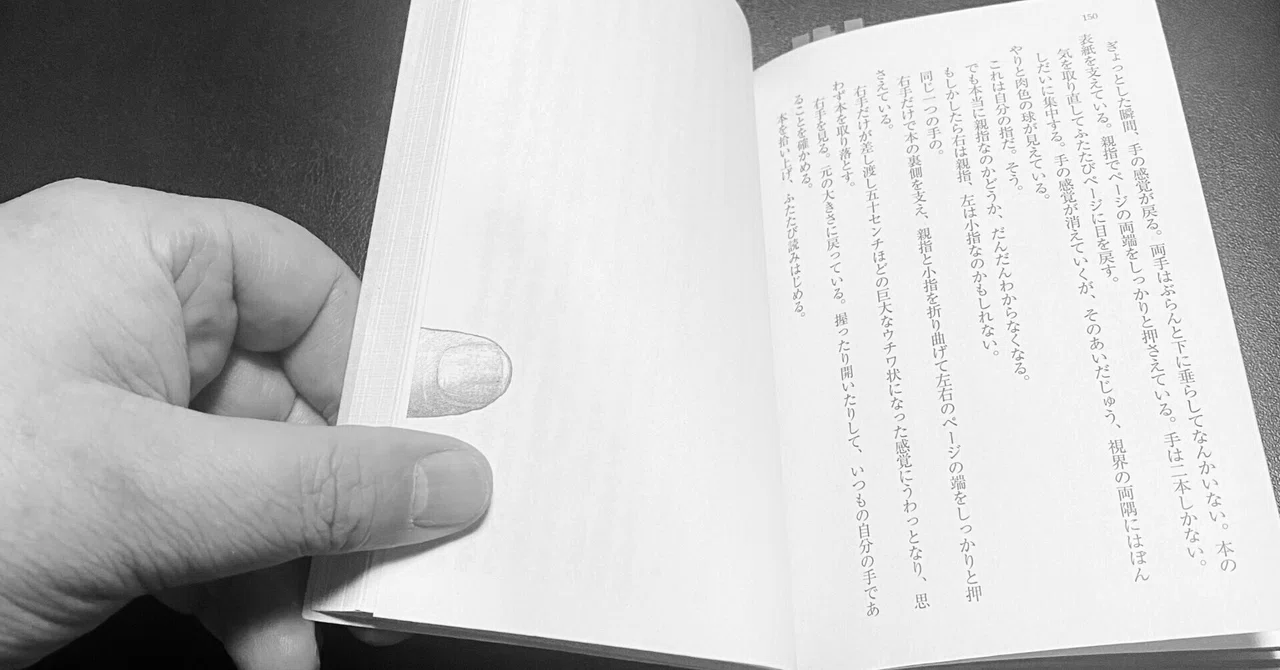 150
ぎょっとした瞬間、手の感覚が戻る。両手はぶらんと下に垂らしてなんかいない。本の
表紙を支えている。親指でページの両端をしっかりと押さえている。手は二本しかない。
気を取り直してふたたびページに目を戻す。
しだいに集中する。手の感覚が消えていくが、そのあいだじゅう、視界の両隅にはぼん
やりと肉色の球が見えている。
これは自分の指だ。そう。
でも本当に親指なのかどうか、だんだんわからなくなる。
もしかしたら右は親指、左は小指なのかもしれない。
同じ一つの手の。
右手だけで本の裏側を支え、親指と小指を折り曲げて左右のページの端をしっかりと押
さえている。
右手だけが差し渡し五十センチほどの巨大なウチワ状になった感覚にうわっとなり、思
わず本を取り落とす。
右手を見る。元の大きさに戻っている。握ったり開いたりして、いつもの自分の手であ
ることを確かめる。
本を拾い上げ、ふたたび読みはじめる。